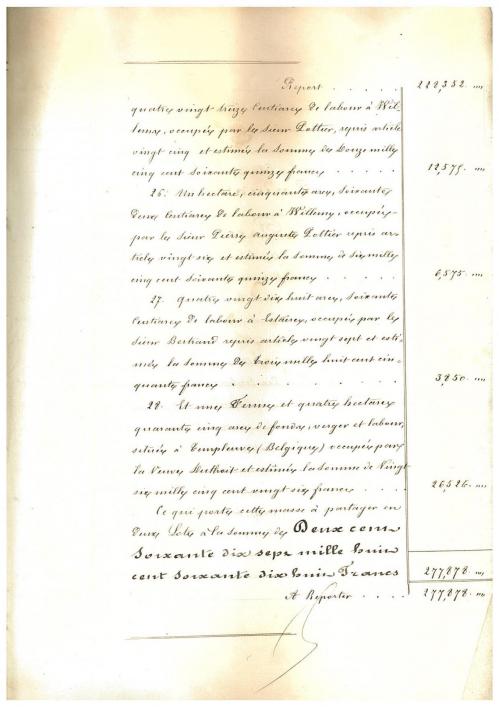 Report . . . . . 228,352. "
quatre vingt treize Centiares de labour à Wil-
lems, occupés par le sieur Pottier, repris article
vingt cinq et estimés la somme de Douze mille
cinq cent soixante quinze francs . . . . . 12,575. "
26. Un hectare, cinquante ares, soixante
deux Centiares de labour à Willems, occupés
par le sieur Pierre Auguste Pottier repris ar-
ticle vingt six et estimés la somme de six mille
cinq cent soixante quinze francs . . . . 6,575. "
27. Quatre vingt dix huit ares, soixante
Centiares de labour à Estaires, occupés par le
sieur Bertrand repris article vingt sept et esti-
més la somme de trois mille huit cent cin-
quante francs . . . . . . . 3,850. "
28. Et une Ferme et quatre hectares
quarante cinq ares de fonds, verger et labour,
située à Templeuve (Belgique) occupée par
la Veuve Duthoit et estimée la somme de Vingt
six mille cinq cent vingt six francs . . . . 26,526. "
Ce qui porte cette masse à partager en
deux Lots à la somme de Deux cent
soixante dix sept mille huit
cent soixante dix huit Francs 277,878. "
A Reporter . . . . 277,878. "